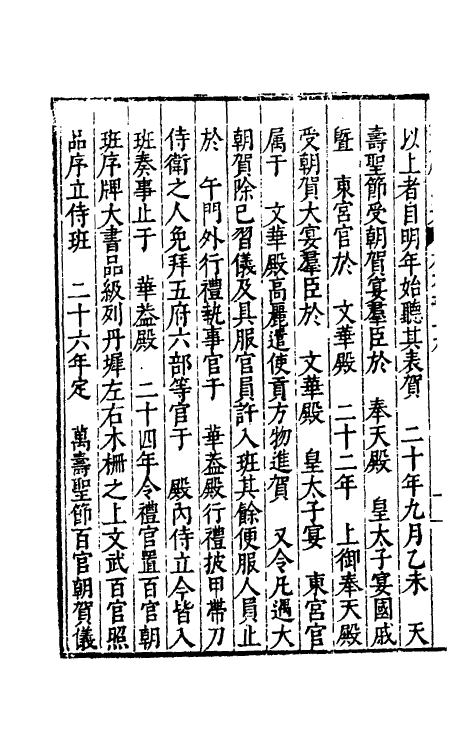 以上者自明年始聽其表賀　二十年九月乙未　天
壽聖節受朝賀宴羣臣於　奉天殿　皇太子宴國戚
曁　東宮官於　文華殿　二十二年　上御奉天殿
受朝賀大宴羣臣於　文華殿　皇太子宴　東宮官
属于　文華殿高麗遣使貢方物進賀　又令凡遇大
朝賀除已習儀及具服官員許入班其餘便服人員止
於　午門外行禮執事官于　華葢殿行禮披甲帶刀
侍衛之人免拜五府六部等官于　殿內侍立今皆入
班奏事止于　華葢殿　二十四年令禮官置百官朝
班序牌大書品級列丹墀左右木柵之上文武百官照
品序立侍班　二十六年定　萬壽聖節百官朝賀儀